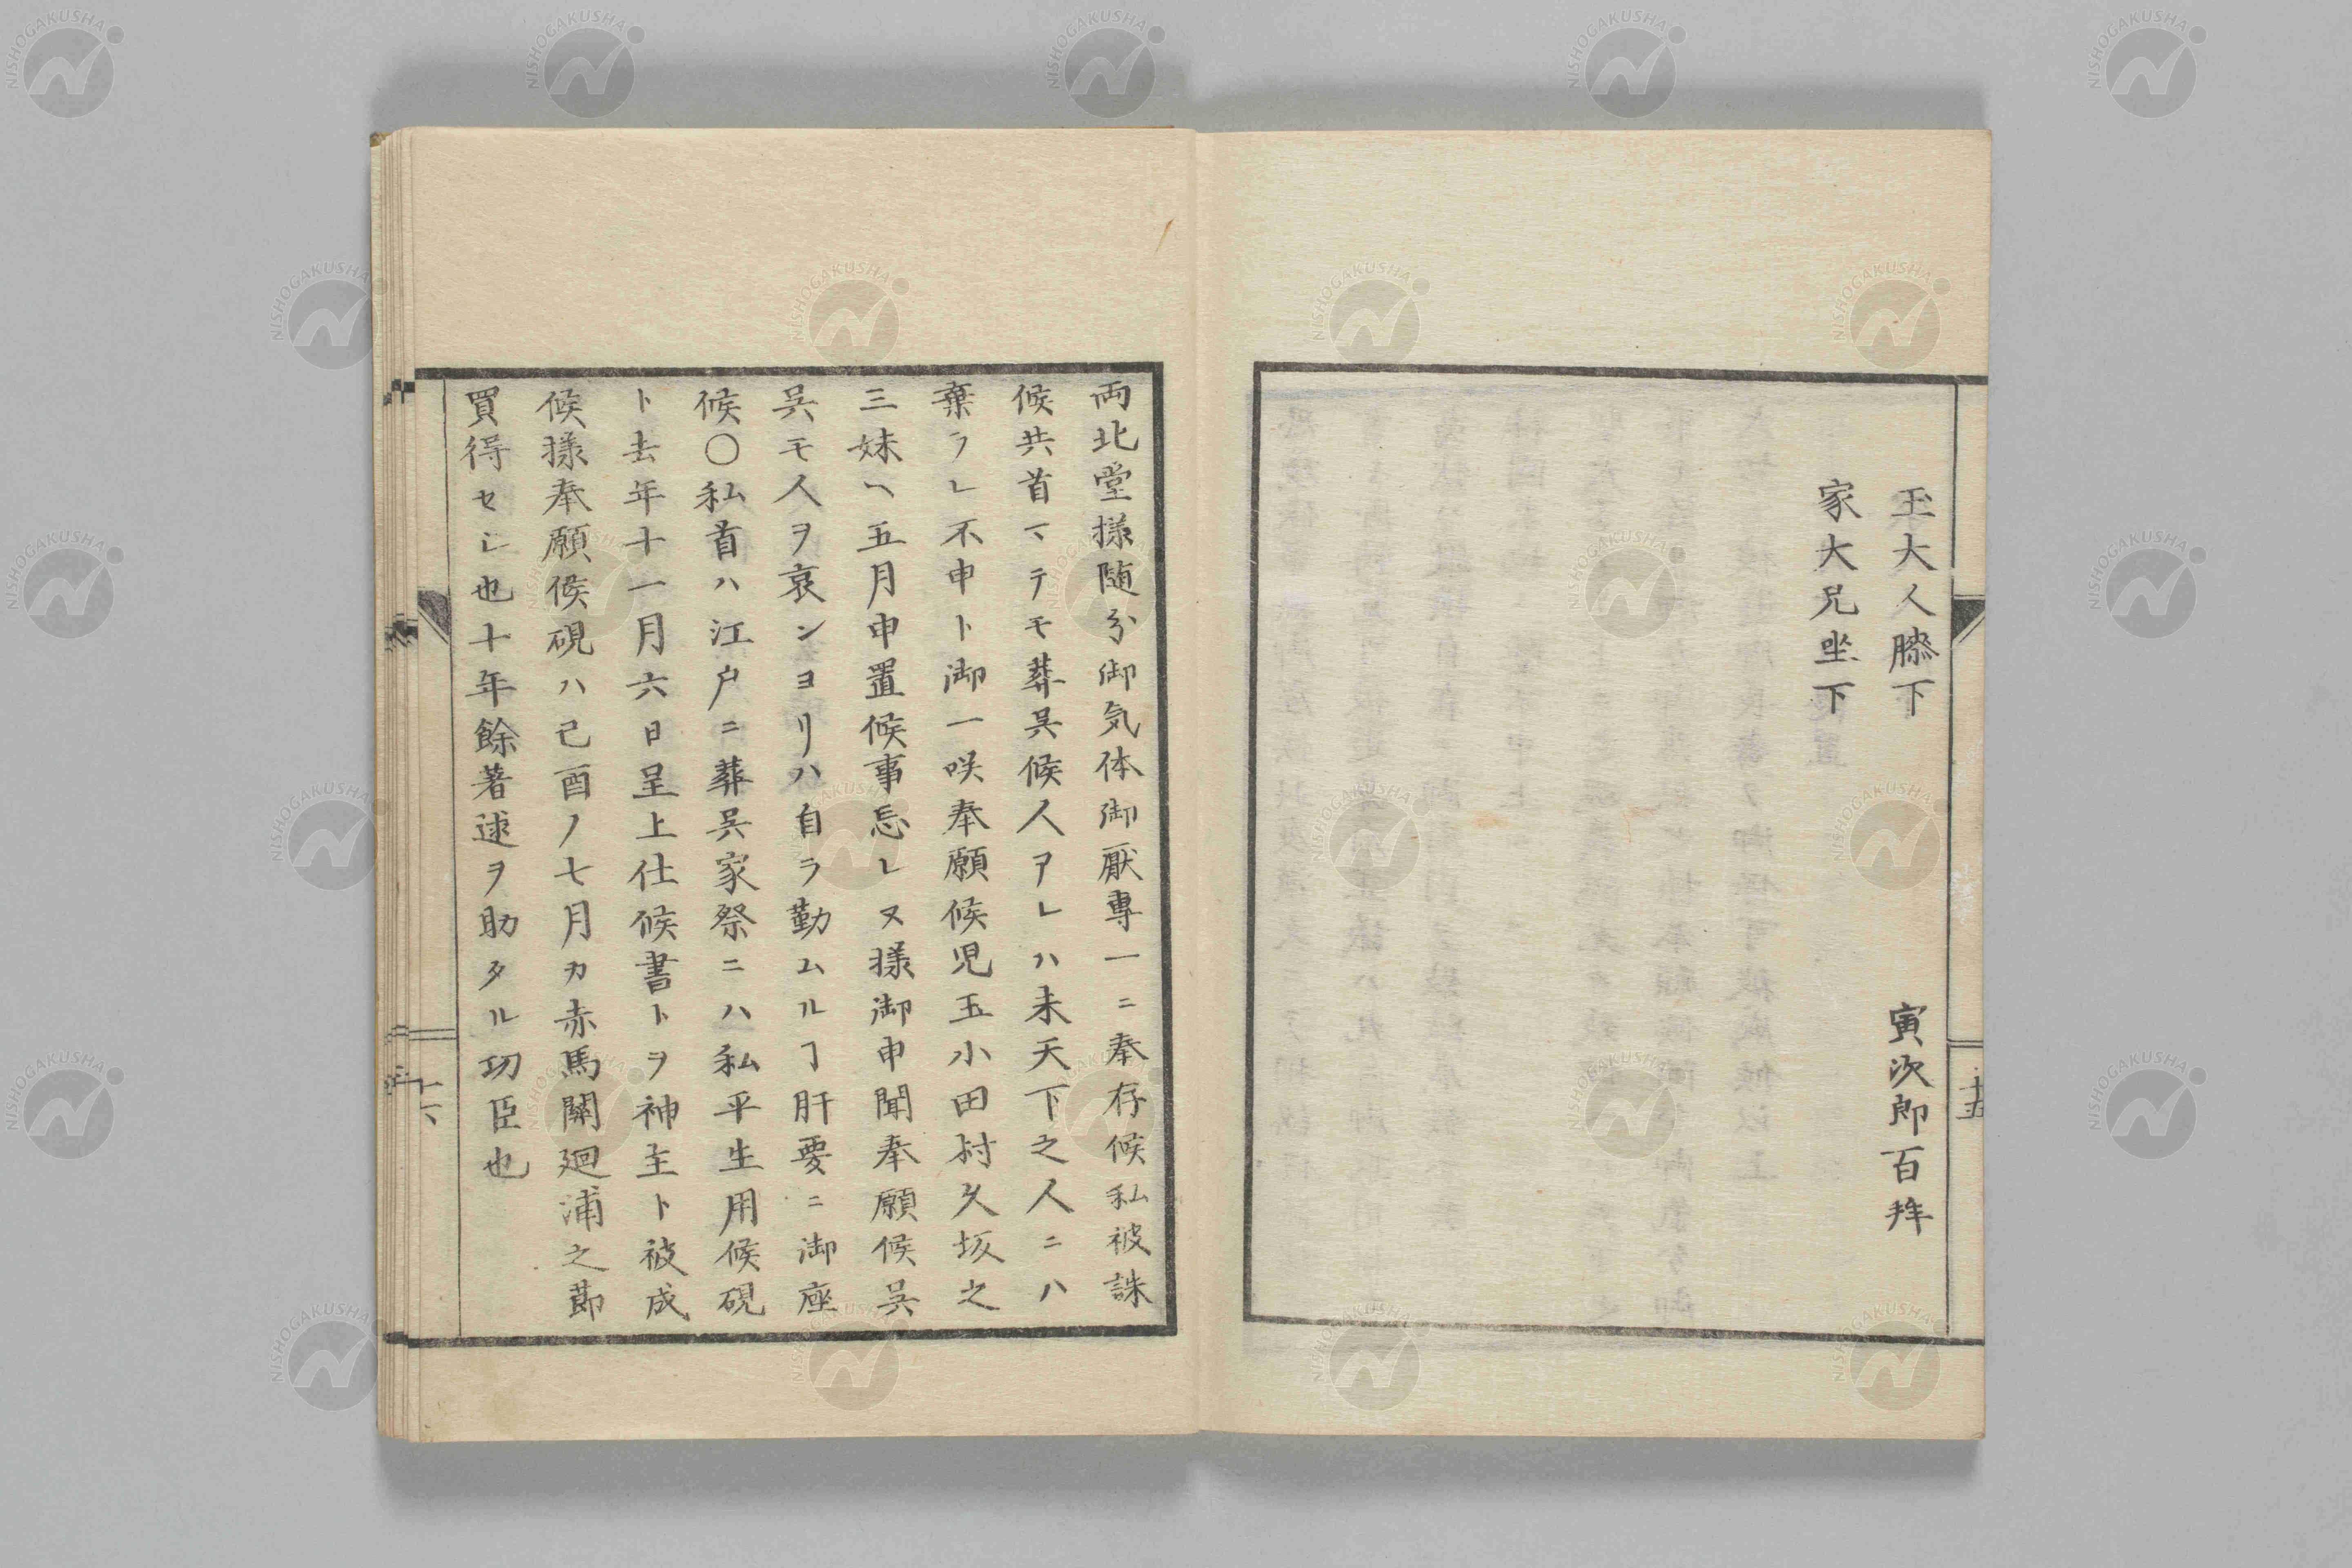 玉大人膝下　寅次郎百拜
家大兄坐下
十五
両北堂様随分御気体御厭專一ニ奉存候私被誅
候共首マテモ葬呉候人アレハ未天下之人ニハ
棄ラレ不申ト御一咲奉願候児玉小田村久坂之
三妹ヘ五月申置候事忘レヌ様御申聞奉願候呉
呉モ人ヲ哀ンヨリハ自ラ勤ムルヿ肝要ニ御座
候〇私首ハ江戸ニ葬呉家祭ニハ私平生用候硯
ト去年十一月六日呈上仕候書トヲ神主ト被成
候様奉願候硯ハ己酉ノ七月カ赤馬關廻浦之節
買得セシ也十年餘著述ヲ助タル功臣也
十六
NISHOGAKUSHA